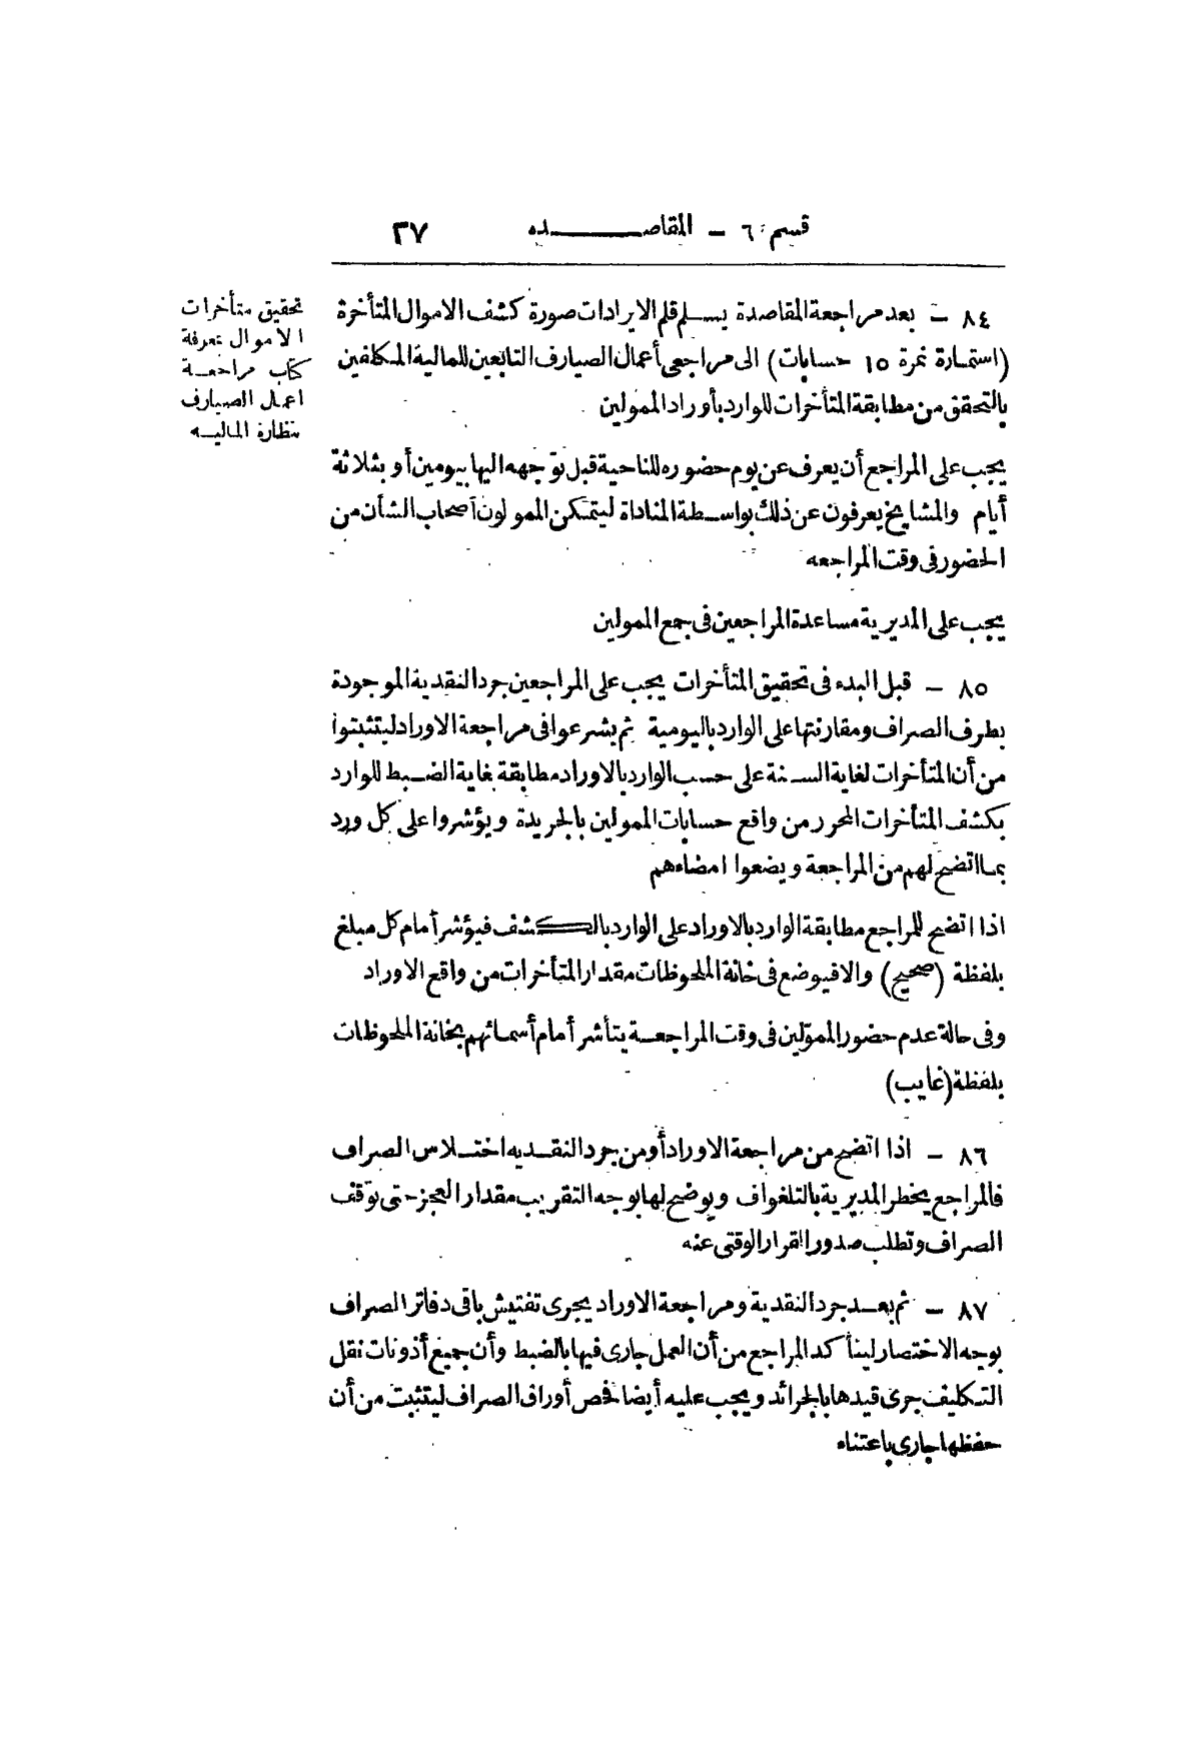 قسم ٦ – المقاصده ٣٧
٨٤ – بعد مراجعة المقاصدة يسلم قلم الايرادات صورة كشف الاموال المتأخرة
(استمارة نمرة ١٥ حسابات) الى مراجعى أعمال الصيارف التابعين للمالية المكلفين
بالتحقق من مطابقة المتأخرات للوارد بأوراد الممولين
تحقيق متأخرات
الاموال بمعرفة
كتاب مراجعة
اعمال الصيارف
بنظارة الماليه
يجب على المراجع أن يعرف عن يوم حضوره للناحية قبل توجهه اليها بيومين أو بثلاثة
أيام والمشايخ يعرفون عن ذلك بواسطة المناداة ليتمكن الممولون أصحاب الشأن من
الحضور فى وقت المراجعه
يجب على المديرية مساعدة المراجعين فى جمع الممولين
٨٥ – قبل البدء فى تحقيق المتأخرات يجب على المراجعين جرد النقدية الموجودة
بطرف الصراف ومقارنتها على الوارد باليومية ثم يشرعوا فى مراجعة الاوراد ليتثبتوا
من أن المتأخرات لغاية السنة على حسب الوارد بالاوراد مطابقة بغاية الضبط للوارد
بكشف المتأخرات المحرر من واقع حسابات الممولين بالجريدة ويؤشروا على كل ورد
بما اتضح لهم من المراجعة ويضعوا امضاءهم
اذا اتضح للمراجع مطابقة الوارد بالاوراد على الوارد بالكشف فيؤشر أمام كل مبلغ
بلفظة (صحيح) والا فيوضع فى خانة الملحوظات مقدار المتأخرات من واقع الاوراد
وفى حالة عدم حضور الممولين فى وقت المراجعة يتأشر أمام أسمائهم بخانة الملحوظات
بلفظة (غايب)
٨٦ – اذا اتضح من مراجعة الاوراد أو من جرد النقديه اختلاس الصراف
فالمراجع يخطر المديرية بالتلغراف ويوضح لها بوجه التقريب مقدار العجز حتى توقف
الصراف وتطلب صدور القرار الوقتى عنه
٨٧ – ثم بعد جرد النقدية ومراجعة الاوراد يجرى تفتيش باقى دفاتر الصراف
بوجه الاختصار ليتأكد المراجع من أن العمل جارى فيها بالضبط وأن جميع أذونات نقل
التكليف جرى قيدها بالجرائد ويجب عليه أيضا فحص أوراق الصراف ليتثبت من أن
حفظها جارى باعتناء